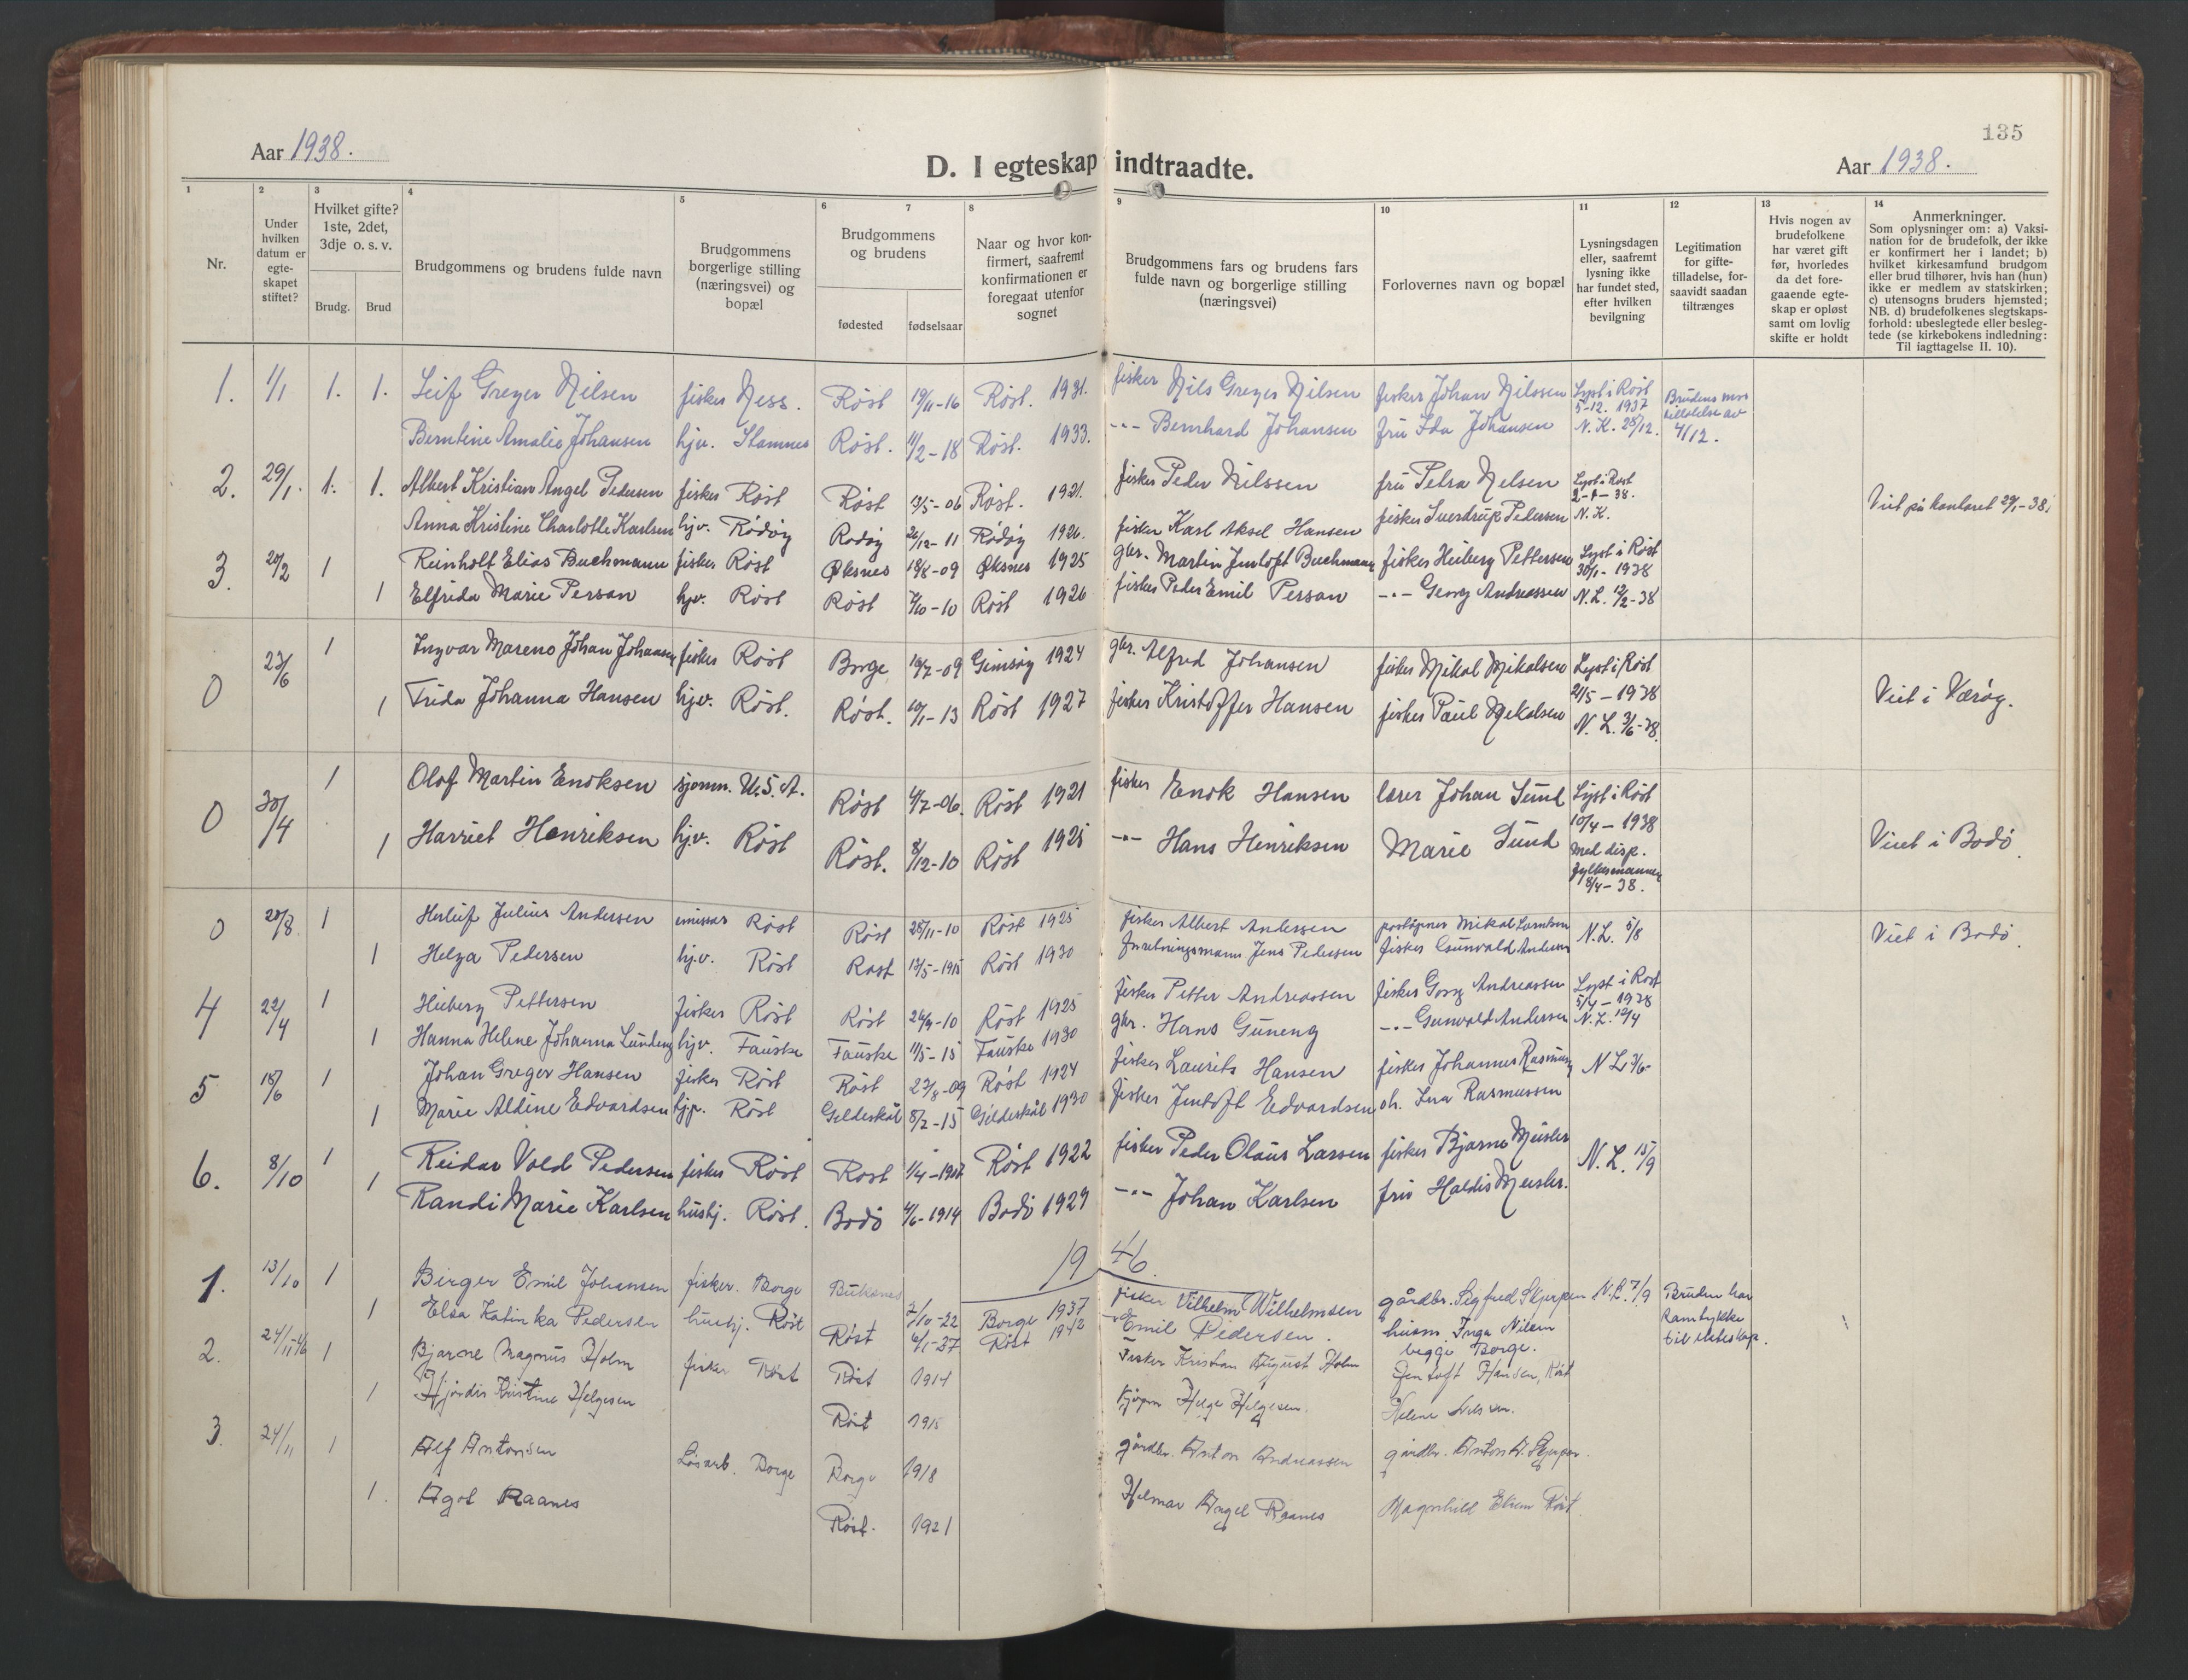 135
Aar 1938.
D. I egteskap indtraadte.
Aar 1938.
1
2
3
4
5
6
7
8
9
10
11
12
13
14
Nr.
Under hvilken datum er egte-skapet stiftet?
Hvilket gifte? 1ste, 2det, 3dje o. s. v.
Brudg.
Brud
Brudgommens og brudens fulde navn
Brudgommens borgerlige stilling (næringsvei) og bopæl
Brudgommens og brudens
fødested
fødselsaar
Naar og hvor kon-firmert, saafremt konfirmationen er foregaat utenfor sognet
Brudgommens fars og brudens fars fulde navn og borgerlige stilling (næringsvei)
Forlovernes navn og bopæl
Lysningsdagen eller, saafremt lysning ikke har fundet sted, efter hvilken bevilgning
Legitimation for gifte-tilladelse, for-saavidt saadan tiltrænges
Hvis nogen av brudefolkene har været gift før, hvorledes da det fore-gaaende egte-skap er opløst samt om lovlig skifte er holdt
Anmerkninger.
Som oplysninger om: a) Vaksi-nation for de brudefolk, der ikke er konfirmert her i landet; b) hvilket kirkesamfund brudgom eller brud tilhører, hvis han (hun) ikke er medlem av statskirken; c) utensogns bruders hjemsted; NB. d) brudefolkenes slegtskaps-forhold: ubeslegtede eller besleg-tede (se kirkebokens indledning: Til iagttagelse II. 10).
1. 1/1 1. 1. Leif Greger Nilsen fisker Ness. Røst 19/11-16 Røst. 1931. fisker Nils Greger Nilsen fisker Johan Nilssen Lyst i Røst 5-12. 1937
Berntine Amalie Johansen hjv. Stamnes Røst. 11/2-18 Røst. 1933. -"- Bernhard Johansen fru Ida Johansen N. K. 28/12. Brudens mors tillatelse av 4/12.
2. 29/1. 1. 1. Albert Kristian Angel Pedersen fisker Røst Røst 13/5-06 Røst. 1921. fisker Peder Nilssen fru Petra Nelsen Lyst i Røst 2-1-38. Viet på kontoret 29/1-38.
Anna Kristine Charlotte Karlsen hjv. Rødøy Rødøy 26/12-11 Rødøy 1926. fisker Karl Aksel Hansen fisker Sverdrup Pedersen N. K.
3. 20/2 1 Reinholt Elias Buchmann fisker Røst Øksnes 18/8-09 Øksnes 1925 gbr. Martin Jentoft Buchmann fisker Heiberg Pettersen Lyst i Røst 30/1-1938
1 Elfrida Marie Persan hjv. Røst Røst 7/10-10 Røst 1926 fisker Peder Emil Persan -"- Georg Andreassen N. L. 12/2-38
0 23/6 1 Ingvar Mareno Johan Johansen fisker Røst Borge 16/7-09 Gimsøy 1924 gbr. Alfred Johansen fisker Mikal Mikalsen Lyst i Røst 21/5-1938
1 Frida Johanna Hansen hjv. Røst. Røst. 10/1-13 Røst 1927 fisker Kristoffer Hansen fisker Paul Mikalsen N. L. 3/6-38. Viet i Værøy.
0 30/4 1 Olof Martin Enoksen sjøm. U.S.A. Røst 4/7-06. Røst 1921 fisker Enok Hansen lærer Johan Sund Lyst i Røst 10/4-1938
1 Harriet Henriksen hjv. Røst Røst. 8/12-10 Røst 1925 -"- Hans Henriksen Marie Sund med disp. fylkesmannen 8/4-38. Viet i Bodø.
0 28/8 1 Herluf Julius Andersen emissær Røst Røst 28/11-10 Røst 1925 fisker Albert Andersen poståpner Mikal N. L. 5/8 Viet i Bodø.
1 Helga Pedersen hjv. Røst Røst 13/5-1915 Røst 1930 Jens Pedersen fisker Gunvald Andersen
4 22/4 1 Heiberg Pettersen fisker Røst Røst 26/9-10 Røst 1925 fisker Petter Andreassen fisker Georg Andreassen Lyst i Røst 5/4-1938
1 Hanna Helene Johanna Luneng hjv. Fauske Fauske 11/5-15 Fauske 1930 gbr. Hans -"- Gunvald Andersen N. L.
5 18/6 1 Johan Greger Hansen fisker Røst Røst 23/8-09 Røst 1924 fisker Laurits Hansen fisker Johannes Rasmussen N L 3/6-
1 Marie Aldine Edvardsen hjv. Røst Gildeskål 8/2-15 Gildeskål 1930 fisker Jentoft Edvardsen Rasmussen
6. 8/10 1 Reidar Vold Pedersen fisker Røst Røst 1/4-1907 Røst 1922 fisker Peder Olaus Larsen fisker Bjarne Meisler N. L. 15/9
1 Randi Marie Karlsen hushj. Røst. Bodø 4/6-1914 Bodø 1929 -"- Johan Karlsen fru Haldis Meisler.
19 46.
1. 13/10 1 Birger Emil Johansen fisker. Borge Buksnes 7/10-22 Borge 1937 fisker Vilhelm Wilhelmsen gårdbr. Sigfred Skjerpen N. L. 7/9 Bruden har samtykke til ekteskap.
1 Elsa Katinka Pedersen hushj. Røst Røst 6/1-27 Røst 1942 -"- Emil Pedersen. husm. Inga Nilsen begge Borge.
2. 24/11-46 1 Bjarne Magnus Holm fisker Røst Røst 1914 Fisker Kristian August Holm Jentoft Hansen, Røst
1 Hjørdis Kristine Helgesen Røst 1915 Helge Helgesen. Helene Nilsen.
3. 24/11 1 Alf Antonsen Løsarb. Borge Borge 1918 gårdbr. Anton Andreassen gårdbr. Anton A. Skjerpen.
1. Agot Raanes Røst. 1921 Hilmar Angel Raanes Magnhild Røst.